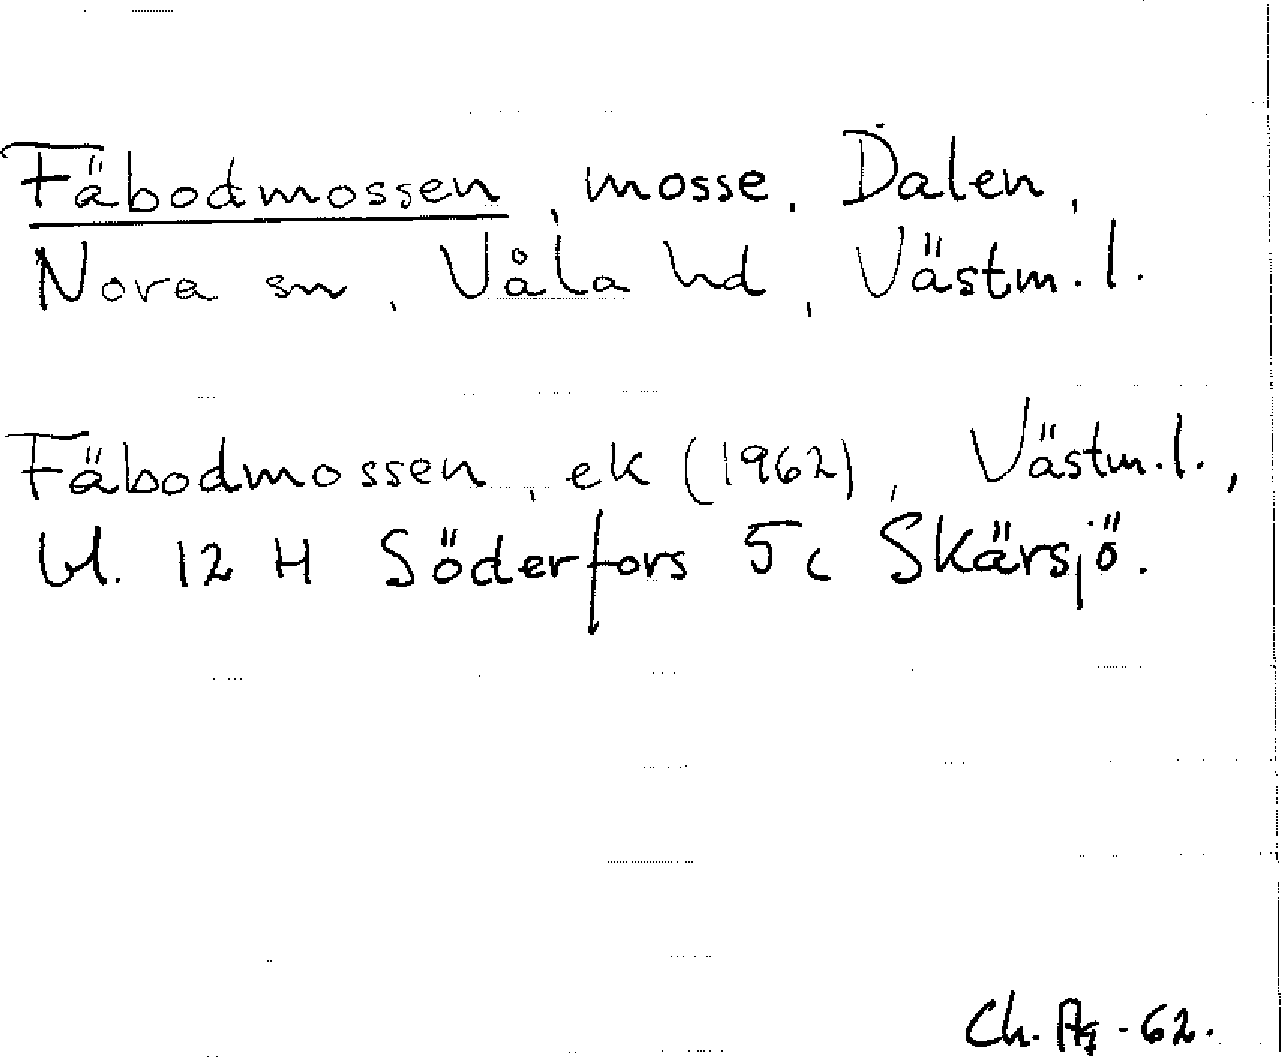 Fäbodmossen, mosse, Dalen,
Nora sn, Våla hd, Västm. l.
Fäbodmossen, ek (1962), Västm. l.,
bl. 12 H Söderfors 5 c Skärsjö.
Ch. Ag -62.